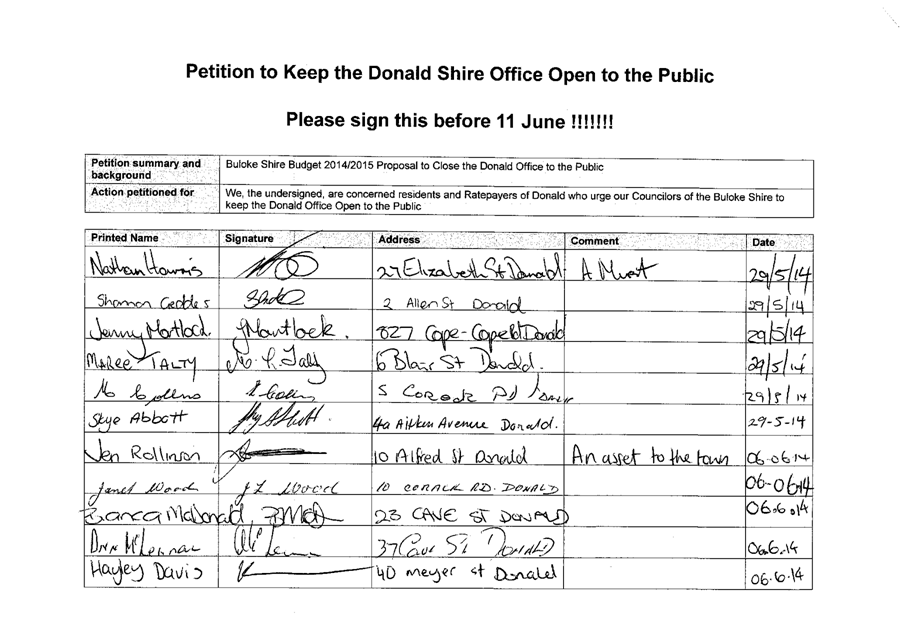 Petition to Keep the Donald Shire Office Open to the Public
Please sign this before 11 June !!!!!!!
Petition summary and background Buloke Shire Budget 2014/2015 Proposal to Close the Donald Office to the Public
Action petitioned for We, the undersigned, are concerned residents and Ratepayers of Donald who urge our Councilors of the Buloke Shire to
keep the Donald Office Open to the Public
Printed Name Signature Address Comment Date
Nathan 27 Elizabeth St Donald A Must 29/5/14
Shannon Geddes 2 Allen St Donald 29/5/14
Jenny Mortlock JMortlock. 827 Cope-Cope Donald 29/5/14
MAREE TALTY 6 Blair St Donald. 29/5/14
M Collins Collins 5 29/5/14
Skye Abbott 4a Aitken Avenue Donald. 29-5-14
Jen Rollinson 10 Alfred St Donald An asset to the town 06-06-14
Janet Wood J L Wood 10 CORACK RD. DONALD 06-06 14
Bianca McDonald 23 CAVE ST DONALD 06.6.14
37 Cave St DONALD 06.6.14
Hayley Davis 40 meyer st Donald 06.6.14